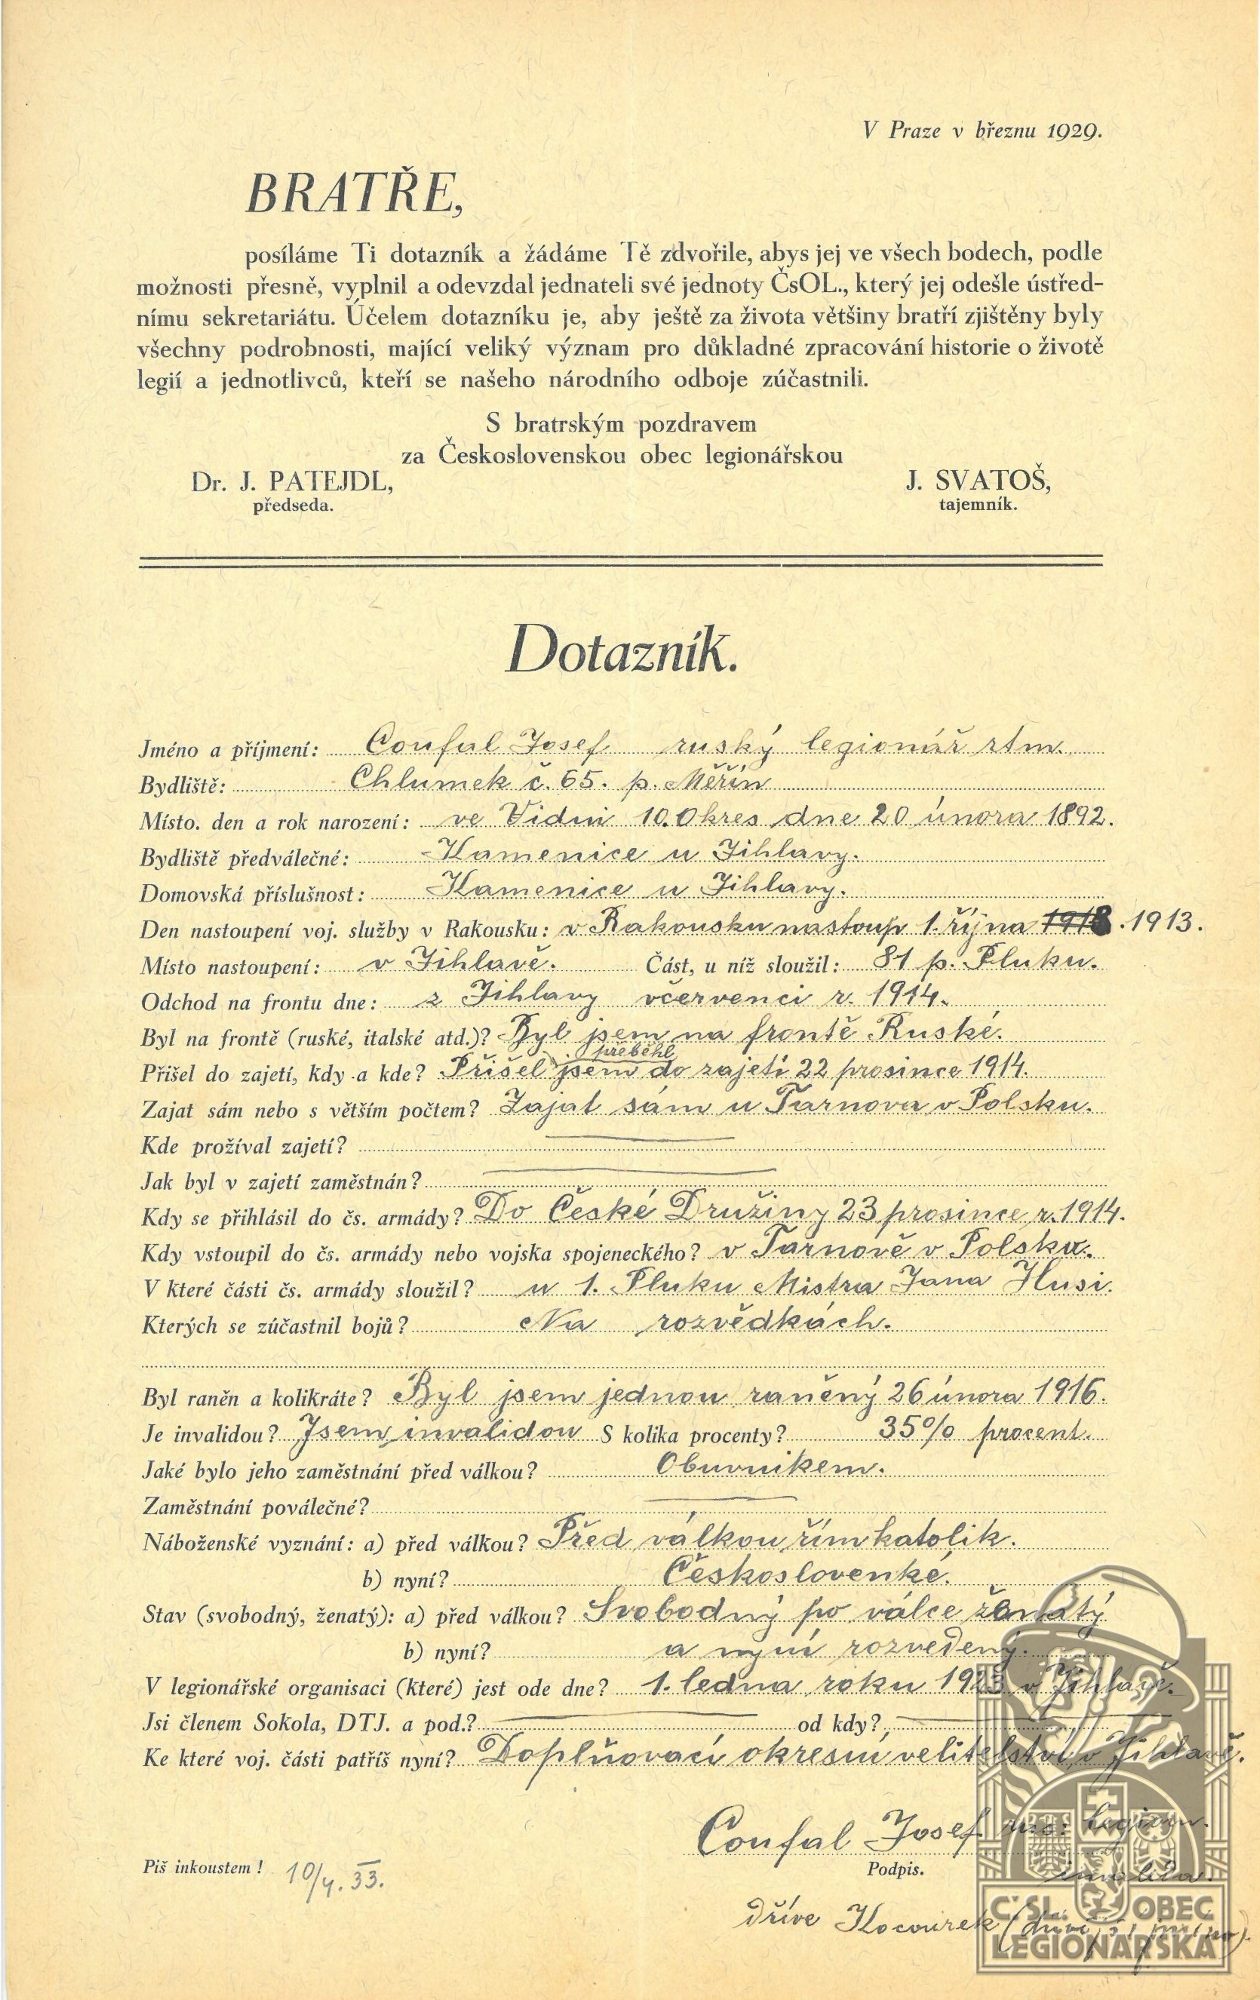 V Praze v březnu 1929.
BRATŘE,
posíláme Ti dotazník a žádáme Tě zdvořile, abys jej ve všech bodech, podle
možnosti přesně, vyplnil a odevzdal jednateli své jednoty ČsOL., který jej odešle ústřed-
nímu sekretariátu. Účelem dotazníku je, aby ještě za života většiny bratří zjištěny byly
všechny podrobnosti, mající veliký význam pro důkladné zpracování historie o životě
legií a jednotlivců, kteří se našeho národního odboje zúčastnili.
S bratrským pozdravem
za Československou obec legionářskou
Dr. J. PATEJDL, J. SVATOŠ,
předseda. tajemník.
Dotazník.
Jméno a příjmení: Coufal Josef ruský legionář rtm.
Bydliště: Chlumek č. 65. p. Měřín
Místo. den a rok narození: ve Vídni 10. Okres dne 20 února 1892.
Bydliště předválečné: Kamenice u Jihlavy.
Domovská příslušnost: Kamenice u Jihlavy.
Den nastoupení voj. služby v Rakousku: v Rakousku nastoup 1. října 1918. 1913.
Místo nastoupení: v Jihlavě. Část, u níž sloužil: 81 p. Pluku.
Odchod na frontu dne: z Jihlavy včervenci r. 1914.
Byl na frontě (ruské, italské atd.)? Byl jsem na frontě Ruské.
přeběhl
Přišel do zajetí, kdy a kde? Přišel jsem do zajetí 22 prosince 1914.
Zajat sám nebo s větším počtem? Zajat sám u Tarnova v Polsku.
Kde prožíval zajetí?
Jak byl v zajetí zaměstnán?
Kdy se přihlásil do čs. armády? Do České Družiny 23 prosince r. 1914.
Kdy vstoupil do čs. armády nebo vojska spojeneckého? v Tarnově v Polsku.
V které části čs. armády sloužil? u 1. Pluku Mistra Jana Husi.
Kterých se zúčastnil bojů? Na rozvědkách.
Byl raněn a kolikráte? Byl jsem jednou raněný 26 února 1916.
Je invalidou? Jsem invalidou S kolika procenty? 35% procent.
Jaké bylo jeho zaměstnání před válkou? Obuvníkem.
Zaměstnání poválečné?
Náboženské vyznání: a) před válkou? Před válkou řím katolík.
b) nyní? Českoslovenké.
Stav (svobodný, ženatý): a) před válkou? Svobodný po válce ženatý
b) nyní? a nyní rozvedený.
V legionářské organisaci (které) jest ode dne? 1. ledna roku 1923 v Jihlavě.
Jsi členem Sokola, DTJ. a pod.? od kdy?
Ke které voj. části patříš nyní? Doplňovací okresní velitelství v Jihlavě.
Coufal Josef rus: legion.
Piš inkoustem! 10/4. 33. Podpis. invalida.
dříve Kocourek
ČSL. OBEC
LEGIONÁŘSKÁ